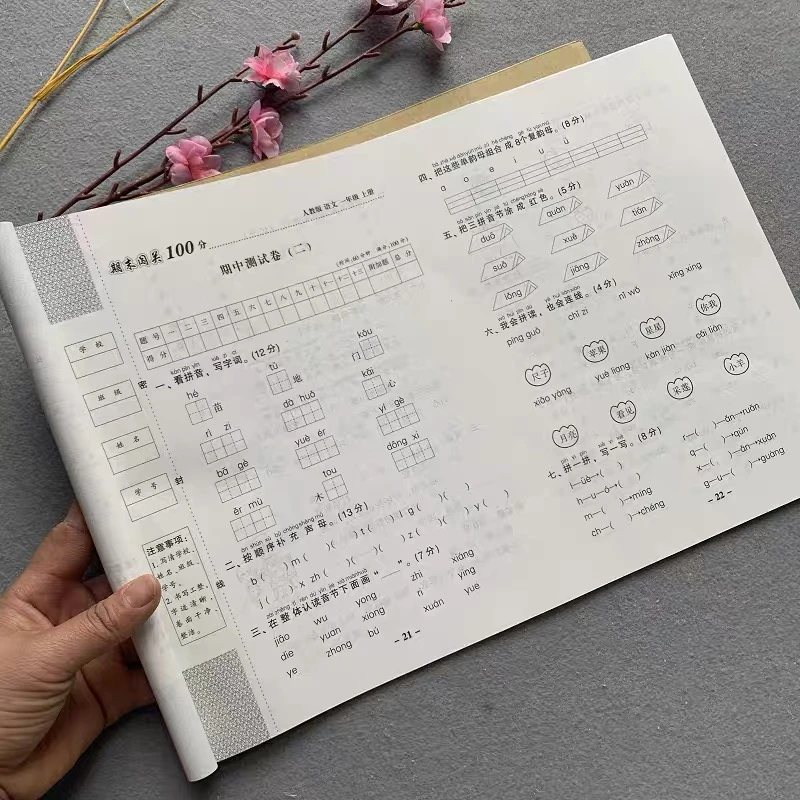 期末闯关100分
人教版 语文 一年级 上册
期中测试卷（二）
（时间：60分钟 满分：100分）
题号 一 二 三 四 五 六 七 八 九 十 十一 十二 十三 附加题 总分
得分
学校
班级
姓名
学号
密
封
线
注意事项：
1. 写清学校、
姓名、班级、
学号。
2. 书写工整，
字迹清晰，
卷面干净、
整洁。
kàn pīn yīn xiě zì cí
一、看拼音，写字词。(12分)
hé tǔ kǒu
苗 地 门
rì zi dà huǒ kāi
心
bā gè yuè ér yí gè
ěr mù tou dōng xi
木
二、按顺序补充声母。(13分)
b( )m( )( )t( )l g( )( )
j( )x zh( )( )( )z( )( )y( )
三、在整体认读音节下面画“——”。(7分)
jiāo wu yong zhi xiàng
die yuan xiong ri ying
ye zhong bù xuán yue
- 21 -
四、把这些单韵母组合成8个复韵母。(8分)
ɑ o e i u ü
五、把三拼音节涂成红色。(5分)
duǒ quàn yuān
suǒ xuě tiān
lóng jiāng zhāng
六、我会拼读，也会连线。(4分)
píng guǒ chǐ zi nǐ wǒ xīng xing
尺子 苹果 星星 你我
xiǎo yáng yuè liang kàn jiàn cǎi lián
月亮 看见 采莲 小羊
pīn yi pīn xiě yi xiě
七、拼一拼，写一写。(8分)
l—üè→( ) r—( )—ǎn→ruǎn
h—u—ó→( ) q—( )→qún
m—( )→míng x—( )—ān→xuān
ch—( )→chéng g—u—( )→guāng
- 22 -